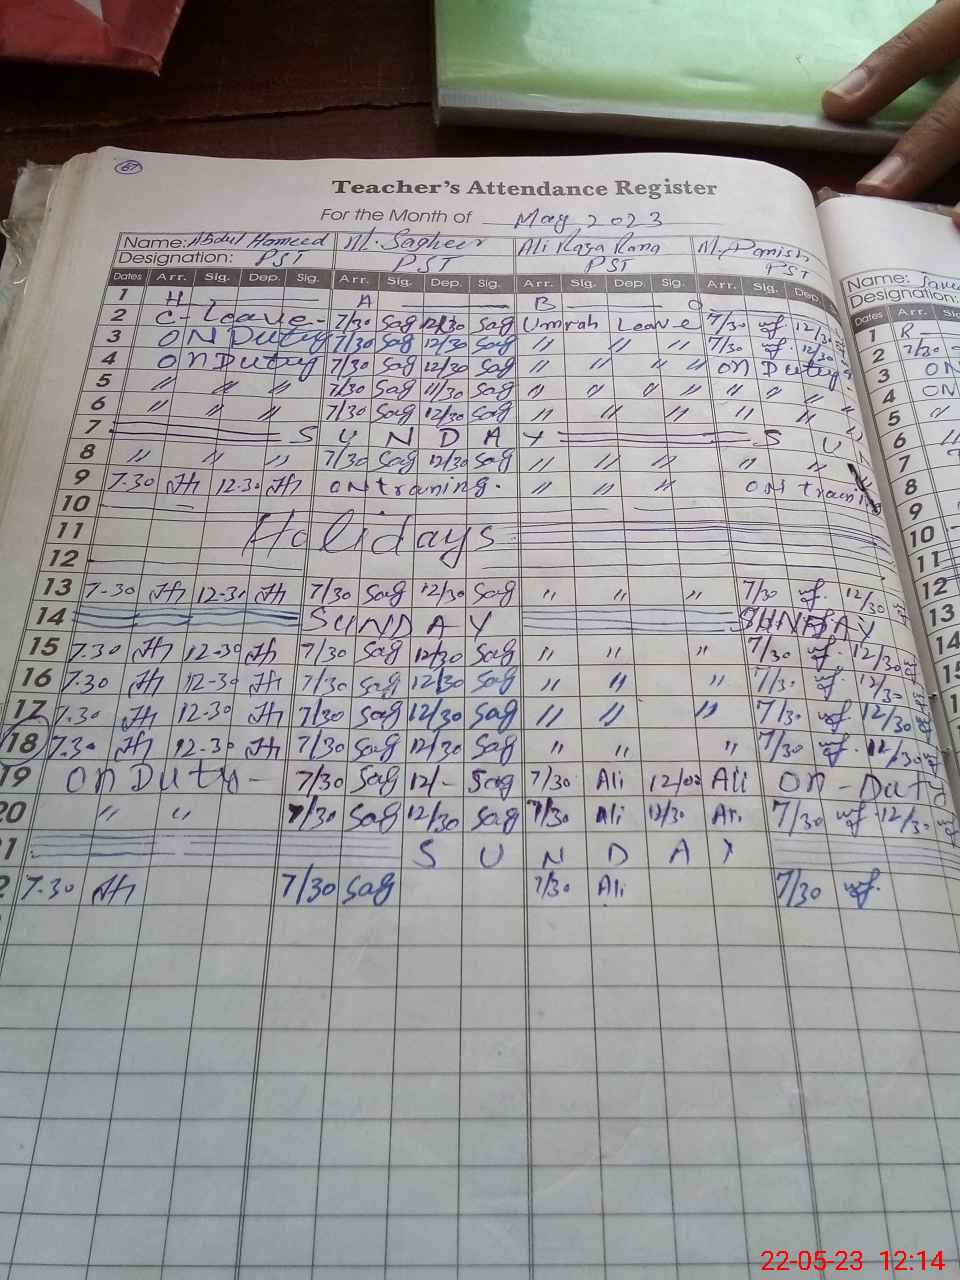 67
Teacher's Attendance Register
For the Month of May 2023
Name: Abdul Hameed M. Sagheer Ali Raza Rana M. Danish
Designation: PST PST PST PST
Name:
Designation:
Dates Arr. Sig. Dep. Sig. Arr. Sig. Dep. Sig. Arr. Sig. Dep. Sig. Arr. Sig. Dep.
Dates Arr.
1 H A B O
2 C- Leave - 7/30 Sag 12/30 Sag Umrah Leave 7/30 12/30
3 ON Duty 7/30 Sag 12/30 Sag " " " 7/30 12/30
4 ON Duty 7/30 Sag 12/30 Sag " " " " ON Duty
5 " " " 7/30 Sag 11/30 Sag " " " " " " "
6 " " " 7/30 Sag 12/30 Sag " " " " "
7 SUNDAY S U N
8 " " " 7/30 Sag 12/30 Sag " " " " "
9 7.30 12-30 ON training. " " " ON training
10
11 Holidays
12
13 7-30 12-30 7/30 Sag 12/30 Sag " " " 7/30 12/30
14 SUNDAY SUNDAY
15 7.30 12-30 7/30 Sag 12/30 Sag " " " 7/30 12/30
16 7.30 12-30 7/30 Sag 12/30 Sag " " " 7/30 12/30
17 7.30 12-30 7/30 Sag 12/30 Sag " " " 7/30 12/30
18 7.30 12-30 7/30 Sag 12/30 Sag " " " 7/30 12/30
19 ON Duty - 7/30 Sag 12/- Sag 7/30 Ali 12/00 Ali ON - Duty
20 " " 7/30 Sag 12/30 Sag 7/30 Ali 12/30 7/30 12/30
1 SUNDAY
2 7.30 7/30 Sag 7/30 Ali 7/30
1 R
2 7/30
3 ON
4 ON
5 "
6 "
7
8
9
10
11
12
13
14
22-05-23 12:14